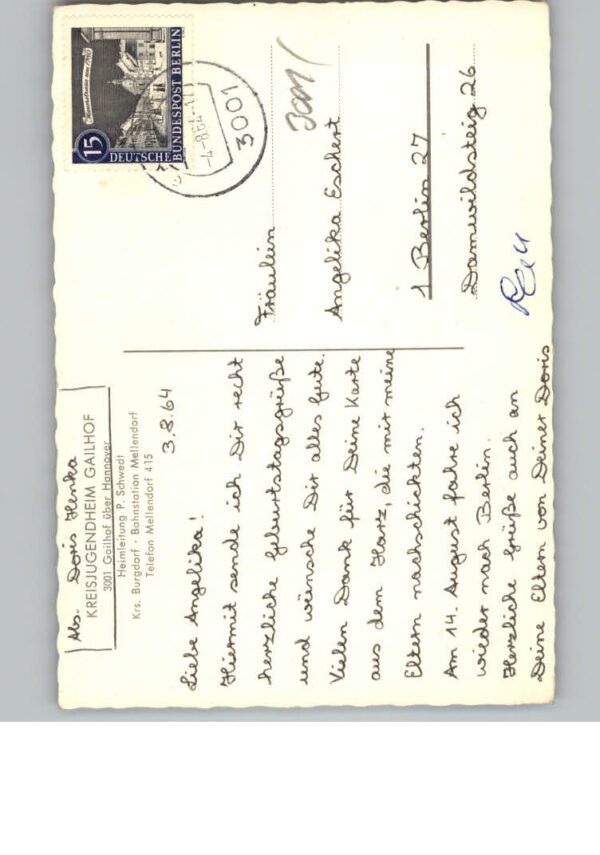 Abs. Doris Henka
KREISJUGENDHEIM GAILHOF
3001 Gailhof über Hannover
Heimleitung P. Schwedt
Krs. Burgdorf - Bahnstation Mellendorf
Telefon Mellendorf 415
3.8.64
Liebe Angelika!
Hiermit sende ich Dir recht
herzliche Geburtstagsgrüße
und wünsche Dir alles Gute.
Vielen Dank für Deine Karte
aus dem Harz, die mir meine
Eltern nachschickten.
Am 14. August fahre ich
wieder nach Berlin.
Herzliche Grüße auch an
Deine Eltern von Deiner Doris
15
DEUTSCHE
BUNDESPOST BERLIN
-4.-8.64-17
3001
Fräulein
Angelika Eschert
1 Berlin 27
Damwildsteig 26